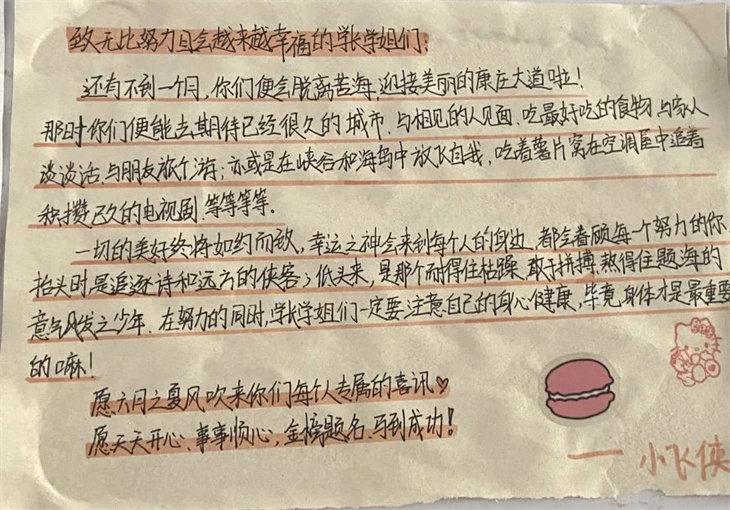 致无比努力且会越来越幸福的学长学姐们：
还有不到一个月，你们便会脱离苦海，迎接美丽的康庄大道啦！
那时你们便能去期待已经很久的城市、与相见的人见面、吃最好吃的食物、与家人
谈谈话、与朋友旅个游；亦或是在峡谷和海岛中放飞自我，吃着薯片窝在空调屋中追着
积攒已久的电视剧、等等等等。
一切的美好终将如约而致，幸运之神会来到每个人的身边，都会眷顾每一个努力的你，
抬头时是追逐诗和远方的侠客；低头来，是那个耐得住枯躁、敢于拼搏、熬得住题海的
意气风发之少年。在努力的同时，学长学姐们一定要注意自己的身心健康，毕竟身体才是最重要
的嘛！
愿六月之夏风吹来你们每个人专属的喜讯♡
愿天天开心、事事顺心，金榜题名、马到成功！
——小飞侠